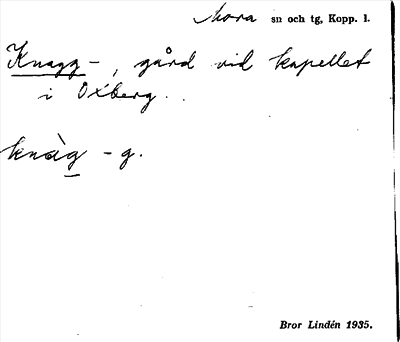 Mora sn och tg, Kopp. l.
Knagg-, gård vid kapellet
i Oxberg.
knàg - g.
Bror Lindén 1935.